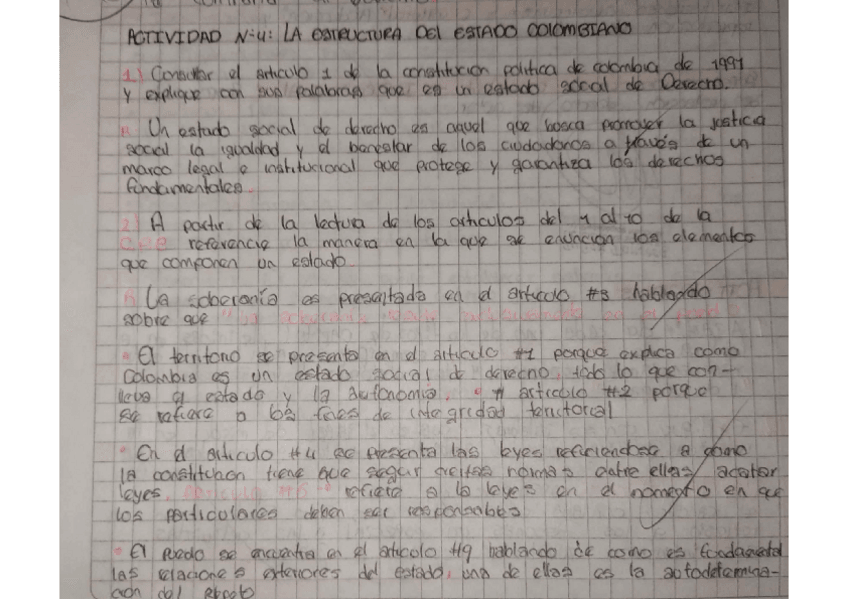 ACTIVIDAD N:4: LA ESTRUCTURA DEL ESTADO COLOMBIANO
1) Consultar el articulo 1 de la constitucion politica de colombia de 1991
y explique con sus palabras que es un estado social de Derecho.
R. Un estado social de derecho es aquel que busca promover la justica
social la igualdad y el bienestar de los ciudadanos a través de un
marco legal e institucional que protege y garantiza los derechos
fundamentales.
2) A partir de la lectura de los articulos del 1 al 10 de la
referencie la manera en la que se enuncian los elementos
que componen un estado
R La soberanía es presentada en el articulo #3 hablando
sobre que
• El territorio se presenta en el articulo #1 porque explica como
Colombia es un estado social de derecho, todo lo que con-
lleva el estado y la autonomia. articulo #2 porque
se refiere a los fines de integridad territorial
• En el articulo #4 se presenta las leyes refiriendose a como
la constitucion tiene que seguir ciertas normas entre ellas acatar
leyes. refiere a la leyes en el momento en que
los particulares deben ser responsables
• El puedo se encuentra en el articulo #9 hablando de como es fundamental
las relaciones exteriores del estado, una de ellas es la autodetermina-
cion del